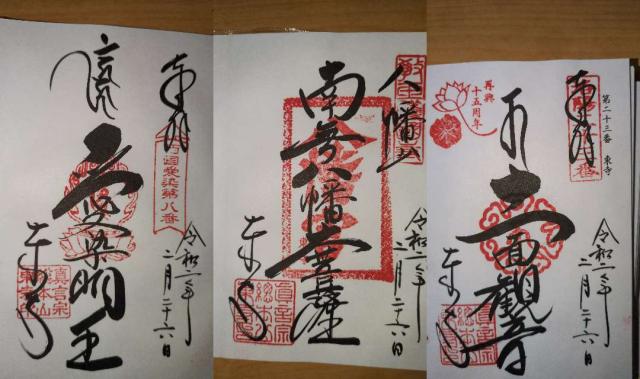 奉拝
愛染明王
東寺
真言宗
総本山
東寺
令和二年
二月二十六日
八幡
南無八幡大菩薩
東寺
真言宗
総本山
東寺
令和二年
二月二十六日
第二十三番 東寺
奉拝
再興
十五周年
十一面観音
東寺
令和二年
二月二十六日